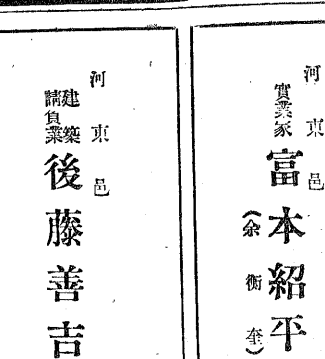 河東邑
實業家
富本紹平
(余衡奎)
河東邑
建築
請負業
後藤善吉